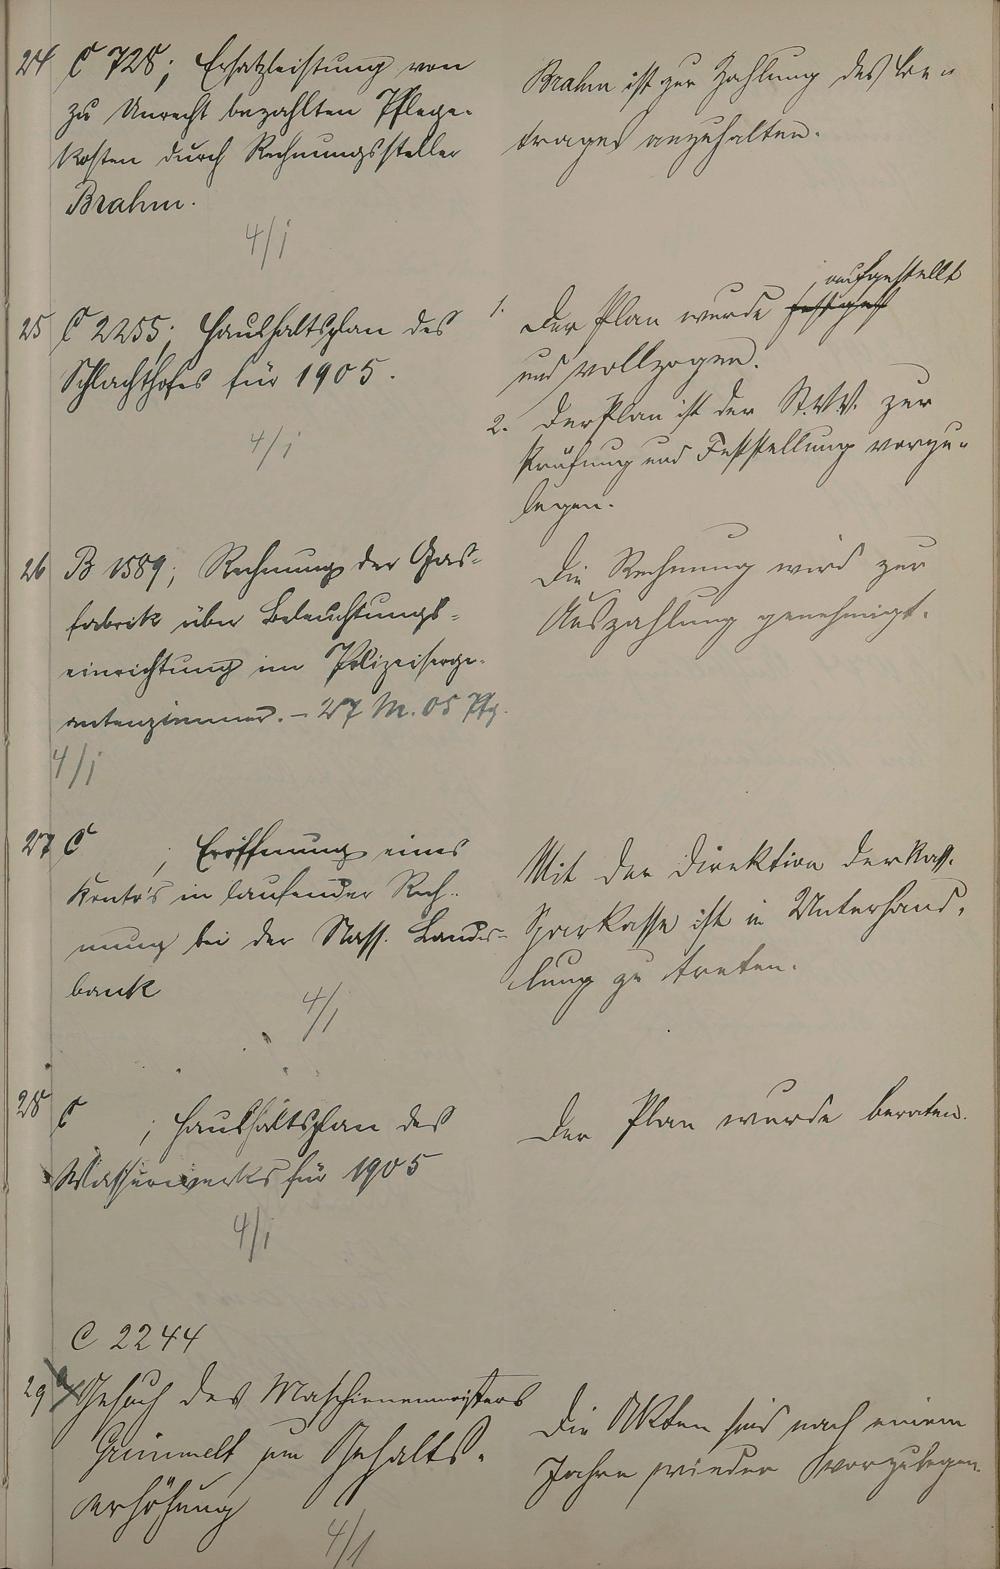 24 C 728; Ersatzleistung von
zu Unrecht bezahlten Pflege-
kosten durch Rechnungssteller
Brahm.
4/1
Brahm ist zur Zahlung des Be-
trages anzuhalten.
25 C 2255; Haushaltsplan des
Schlachthofes für 1905.
4/1
aufgestellt
1. Der Plan wurde
und vollzogen.
2. Der Plan ist der St.V.V. zur
Prüfung und Feststellung vorzu-
legen.
26 B 1589; Rechnung der Gas-
fabrik über Beleuchtungs-
einrichtung im Polizeiserge-
antenzimmer. - 27 M. 05 Pfg.
4/1
Die Rechnung wird zur
Auszahlung genehmigt.
27 C ; Eröffnung eines
Konto's in laufender Rech-
nung bei der Nass. Landes-
bank
4/1
Mit der Direktion der Nass.
Sparkasse ist in Unterhand-
lung zu treten.
28 C ; Haushaltsplan des
Wasserwerks für 1905
4/1
Der Plan wurde beraten.
C 2244
29 Gesuch des Maschinenmeisters
Grimmelt um Gehalts-
erhöhung
4/1
Die Akten sind nach einem
Jahre wieder vorzulegen.